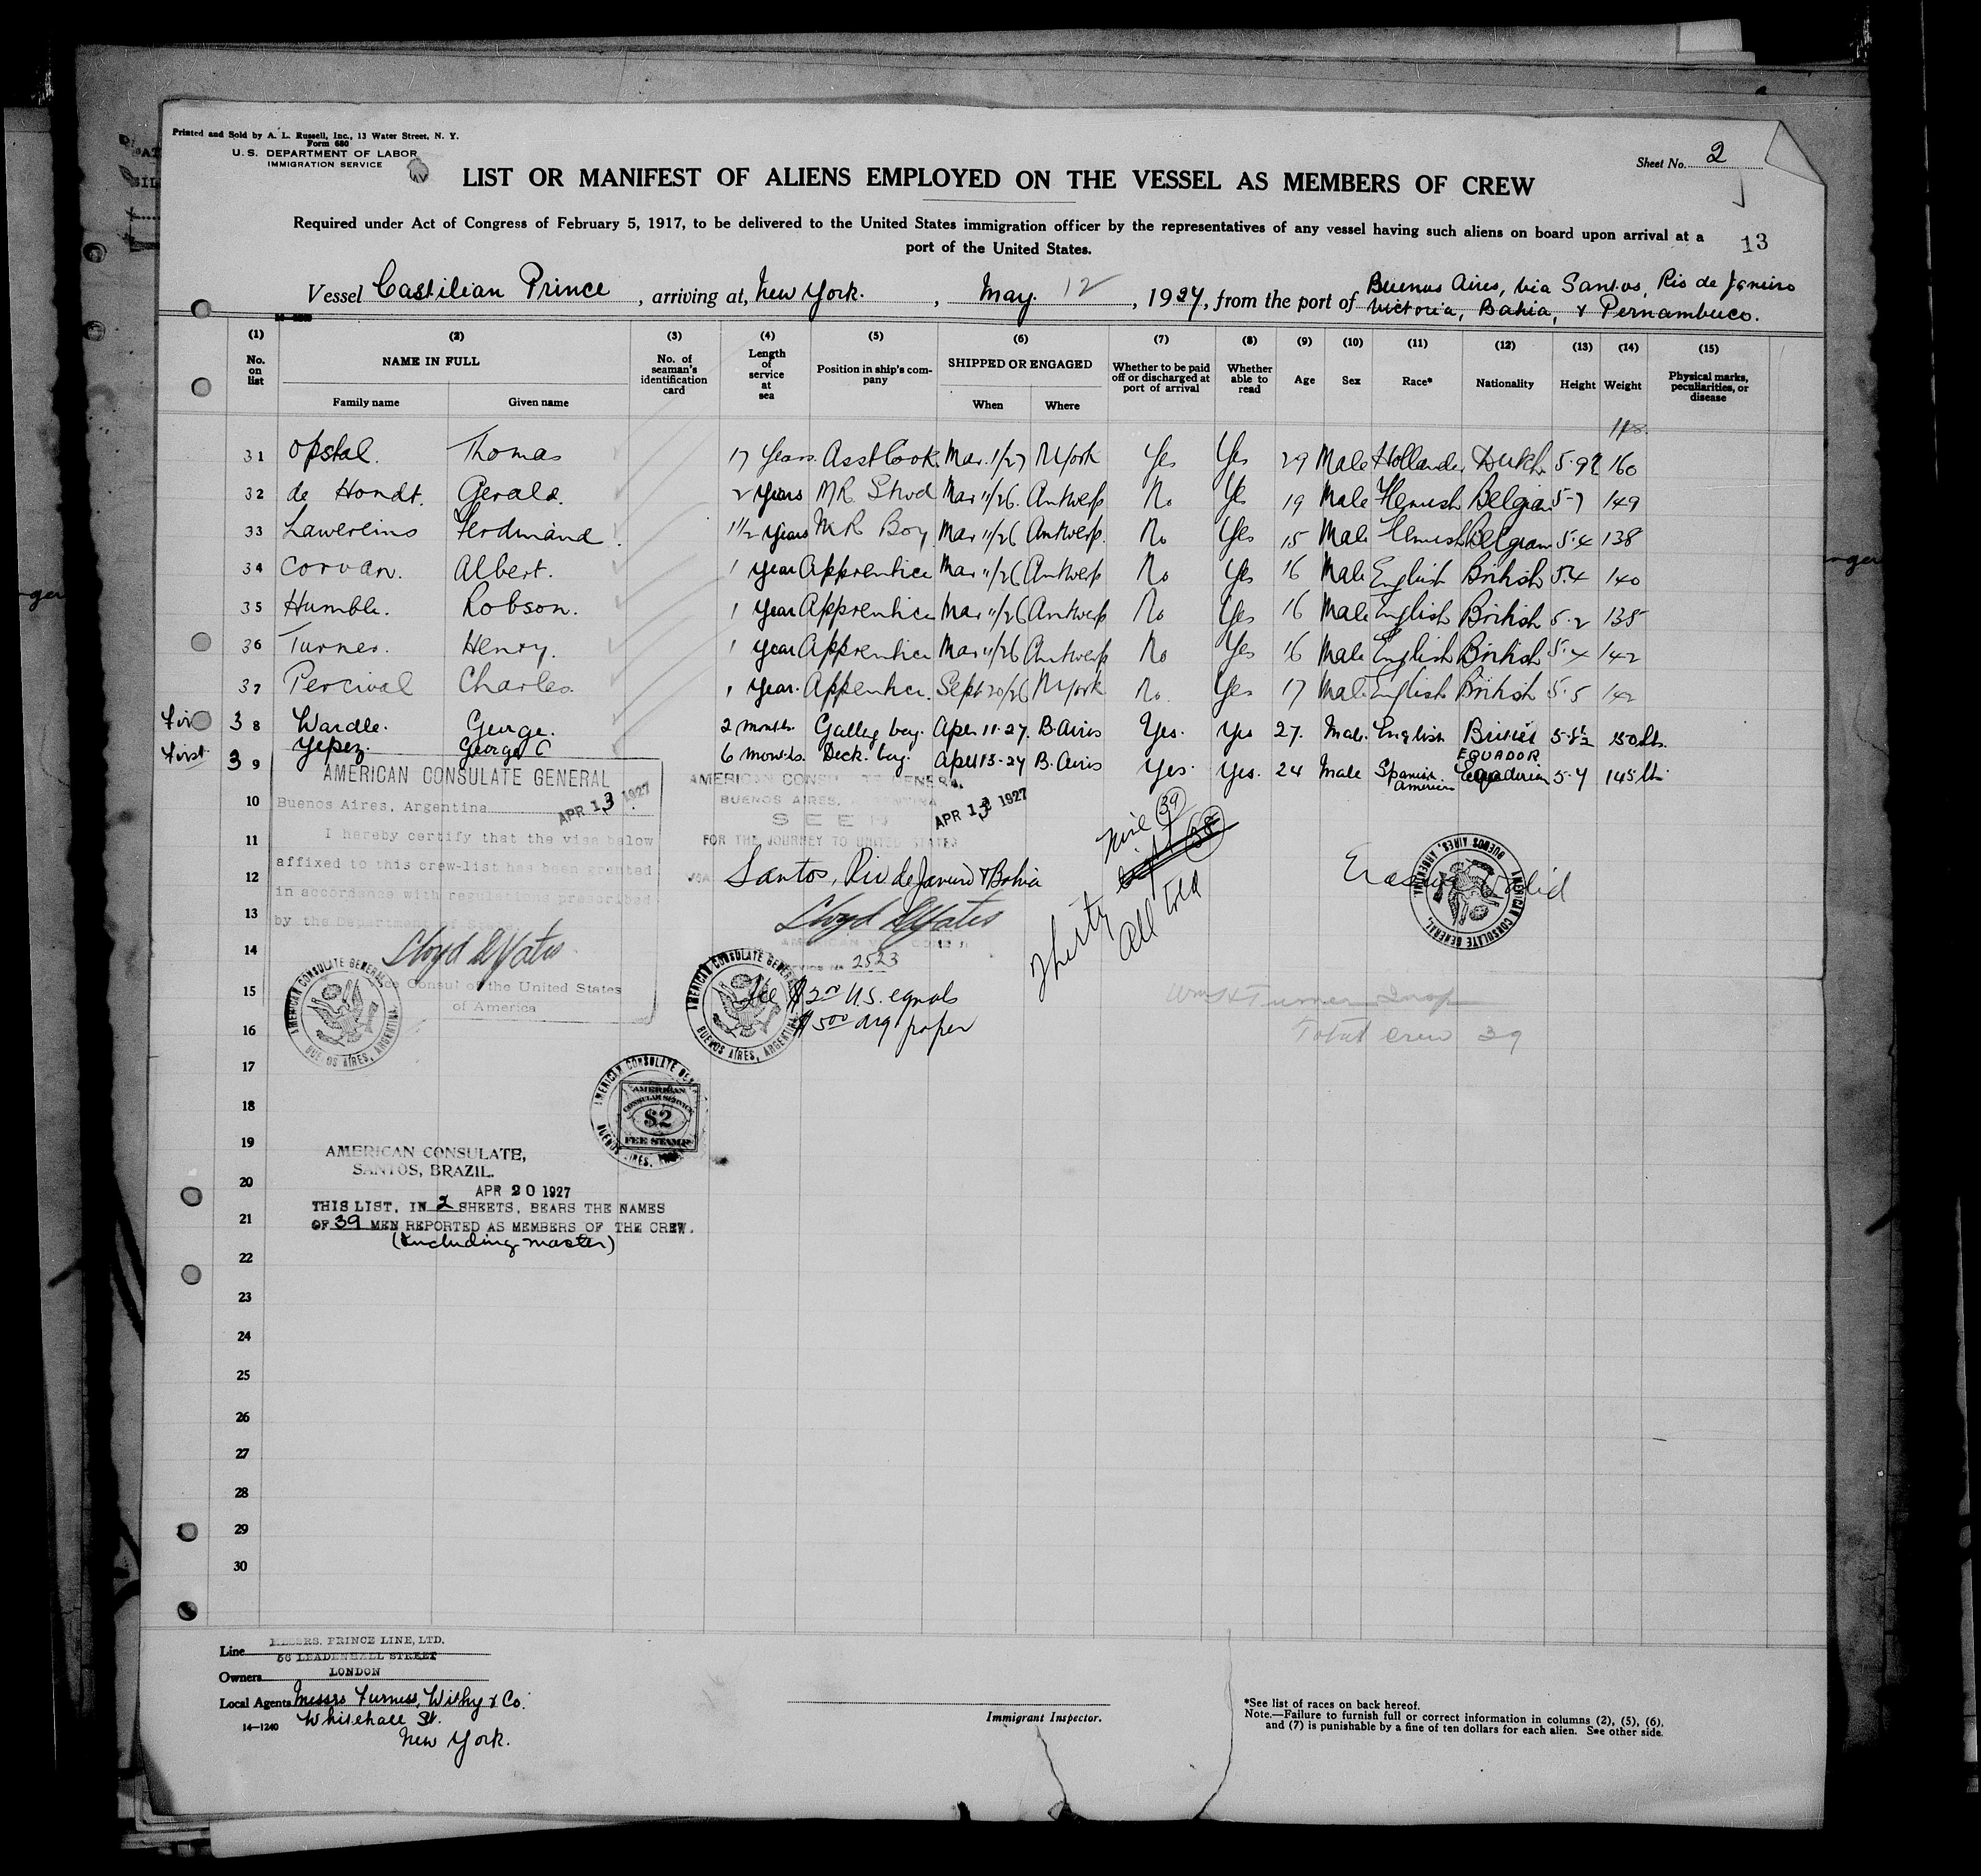 Printed and Sold by A. L. Russell, Inc., 13 Water Street, N. Y.
Form 680
U. S. DEPARTMENT OF LABOR
IMMIGRATION SERVICE
Sheet No. 2
LIST OR MANIFEST OF ALIENS EMPLOYED ON THE VESSEL AS MEMBERS OF CREW
Required under Act of Congress of February 5, 1917, to be delivered to the United States immigration officer by the representatives of any vessel having such aliens on board upon arrival at a
port of the United States.
13
Vessel Castilian Prince, arriving at, New York., May. 12, 1927, from the port of Buenos Aires, via Santos, Rio de Janeiro
Victoria, Bahia, & Pernambuco.
(1) (2) (3) (4) (5) (6) (7) (8) (9) (10) (11) (12) (13) (14) (15)
No. on list NAME IN FULL No. of seaman's identification card Length of service at sea Position in ship's company SHIPPED OR ENGAGED Whether to be paid off or discharged at port of arrival Whether able to read Age Sex Race* Nationality Height Weight Physical marks, peculiarities, or disease
Family name Given name When Where
31 Opstal. Thomas 17 Years. Asst Cook. Mar. 11/27 N York Yes Yes 29 Male Hollander Dutch 5-9½ 160
32 de Hondt. Gerald. 2 Years MR Stwd Mar 11/26. Antwerp No Yes 19 Male Flemish Belgian 5-7 149
33 Lawerlins Ferdinand. 1 1/2 Years M R Boy. Mar 11/26 Antwerp. No Yes 15 Male Flemish Belgian 5.4 138
34 Corvan. Albert. 1 Year Apprentice Mar 11/26 Antwerp No Yes 16 Male English British 5.4 140
35 Humble. Robson. 1 Year Apprentice Mar 11/26 Antwerp No Yes 16 Male English British 5.2 135
36 Turner. Henry. 1 Year Apprentice Mar 11/26 Antwerp No Yes 16 Male English British 5.4 142
37 Percival Charles. 1 Year. Appentice. Sept 20/26 N York No. Yes 17 Male English British 5.5 142
38 Wardle. George. 2 months. Galley boy. Aper 11-27. B. Airis Yes. Yes 27. Male. English 5-8½ 150 lbs.
First 39 Yepez. George C 6 months. Deck. boy. Aper 13-27 B. Airis Yes. Yes. 24 Male Spanish American EQUADOR 5-7 145 lb.
AMERICAN CONSULATE GENERAL
Buenos Aires, Argentina APR 13 1927
I hereby certify that the visa below
affixed to this crew-list has been granted
in accordance with regulations prescribed
by the Department of
Lloyd D Yates
Vice Consul of the United States
of America
AMERICAN CONSULATE GENERAL
BUENOS AIRES, ARGENTINA
APR 13 1927
SEEN
FOR THE JOURNEY TO UNITED STATES
VIA Santos, Rio de Janeiro & Bahia
Lloyd D Yates
AMERICAN VICE CONSUL
Service No. 2523
Fee $2.00 U.S. equals
$5.00 arg paper
Thirty Nine (39)
All told
Erasure Valid
AMERICAN CONSULATE GENERAL, BUENOS AIRES, ARGENTINA.
AMERICAN CONSULATE GENERAL BUENOS AIRES, ARGENTINA.
AMERICAN CONSULATE GENERAL BUENOS AIRES, ARGENTINA.
Wm H Turner Insp
Total crew 39
AMERICAN CONSULAR SERVICE
$2
FEE STAMP
AMERICAN CONSULATE,
SANTOS, BRAZIL.
APR 20 1927
THIS LIST, IN 2 SHEETS, BEARS THE NAMES
OF 39 MEN REPORTED AS MEMBERS OF THE CREW.
(Including master)
10
11
12
13
14
15
16
17
18
19
20
21
22
23
24
25
26
27
28
29
30
Line MESSRS. PRINCE LINE, LTD.
56 LEADENHALL STREET
Owners LONDON
Local Agents Messrs Furness, Withy & Co.
14—1240 Whitehall St.
New York.
Immigrant Inspector.
*See list of races on back hereof.
Note.—Failure to furnish full or correct information in columns (2), (5), (6),
and (7) is punishable by a fine of ten dollars for each alien. See other side.